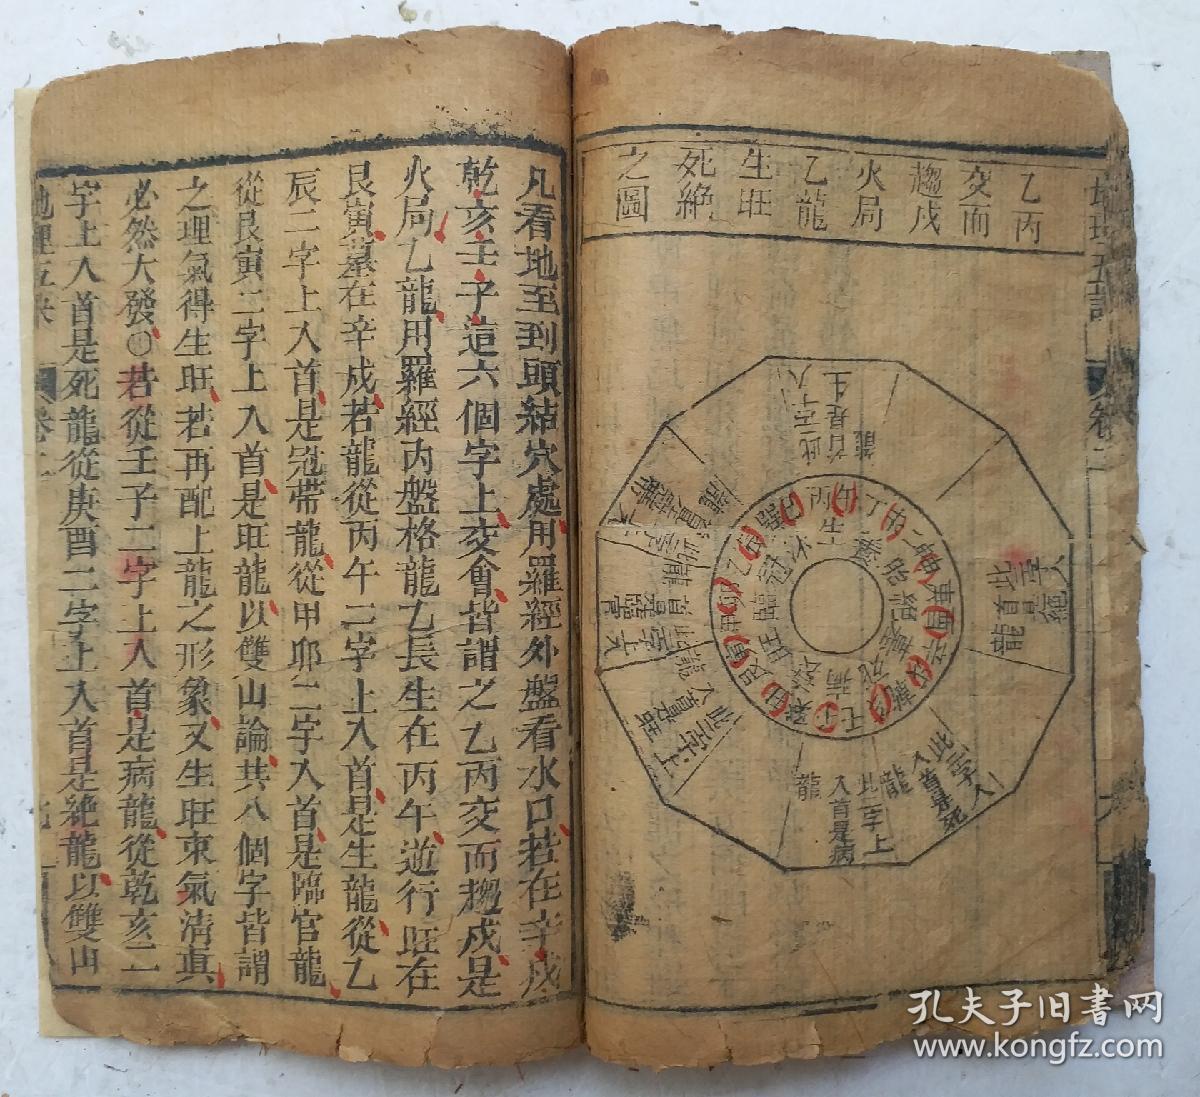 乙丙
交而
趨戍
火局
乙龍
生旺
死絶
之圖
此二字入
首是生
龍
此二字入
首是絶
龍
此二字入
首是死
龍
此二字上
入首是病
龍
凡看地至到頭結穴處用羅經外盤看水口若在辛戍
乾亥壬子這六個字上交會皆謂之乙丙交而趨戍是
火局乙龍用羅經内盤格龍乙長生在丙午逆行旺在
艮寅墓在辛戍若龍從丙午二字上入首是生龍從乙
辰二字上入首是冠帶龍從甲卯二字入首是臨官龍
從艮寅二字上入首是旺龍以雙山論共八個字皆謂
之理氣得生旺若再配上龍之形象又生旺束氣清真
必然大發○若從壬子二字上入首是病龍從乾亥二
字上入首是死龍從庚酉二字上入首是絶龍以雙山
地理五决
卷二
孔夫子旧書网
www.kongfz.com